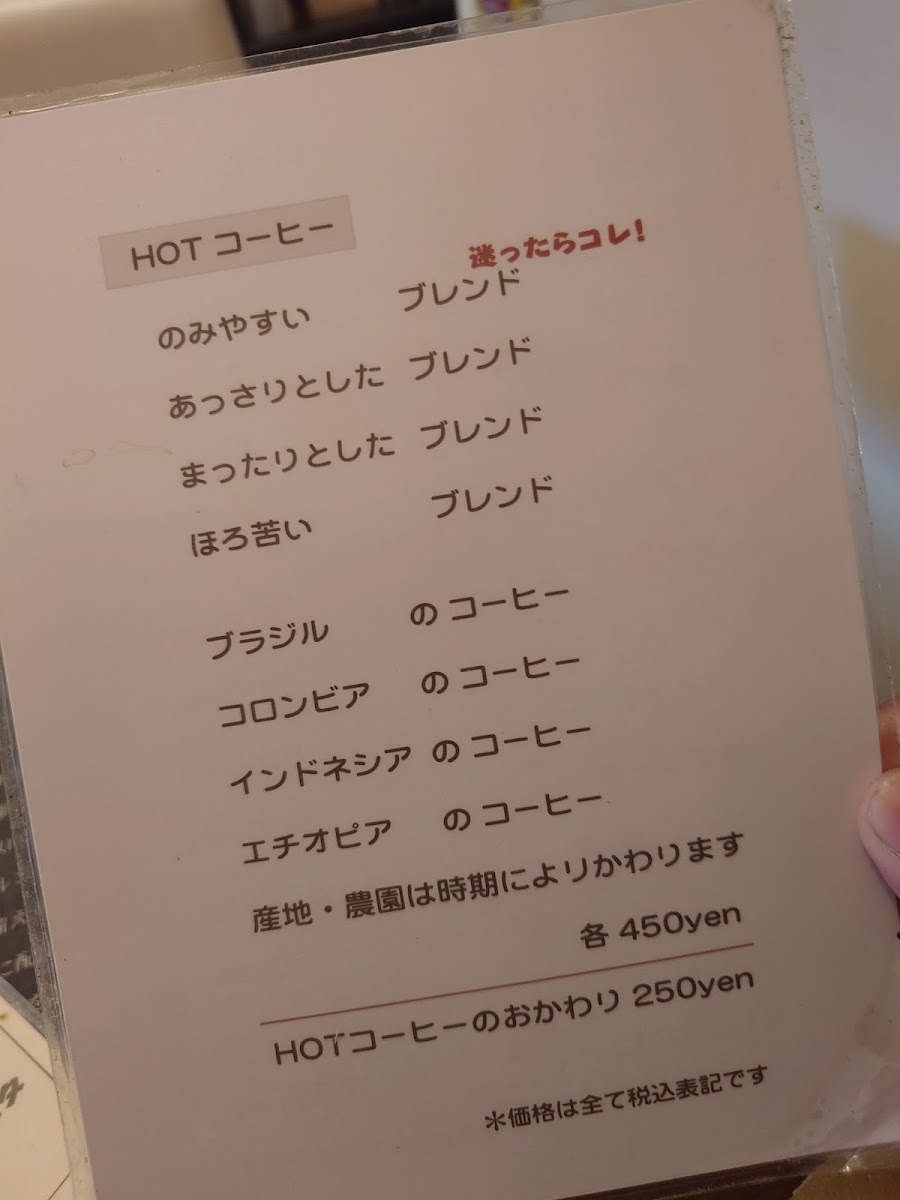 HOT コーヒー
迷ったらコレ!
のみやすい ブレンド
あっさりとした ブレンド
まったりとした ブレンド
ほろ苦い ブレンド
ブラジル の コーヒー
コロンビア の コーヒー
インドネシア の コーヒー
エチオピア の コーヒー
産地・農園は時期によりかわります
各 450yen
HOTコーヒーのおかわり 250yen
＊価格は全て税込表記です